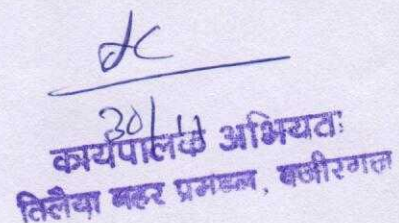 30/11
कार्यपालक अभियंता
तिलैया नहर प्रमंडल, वजीरगंज